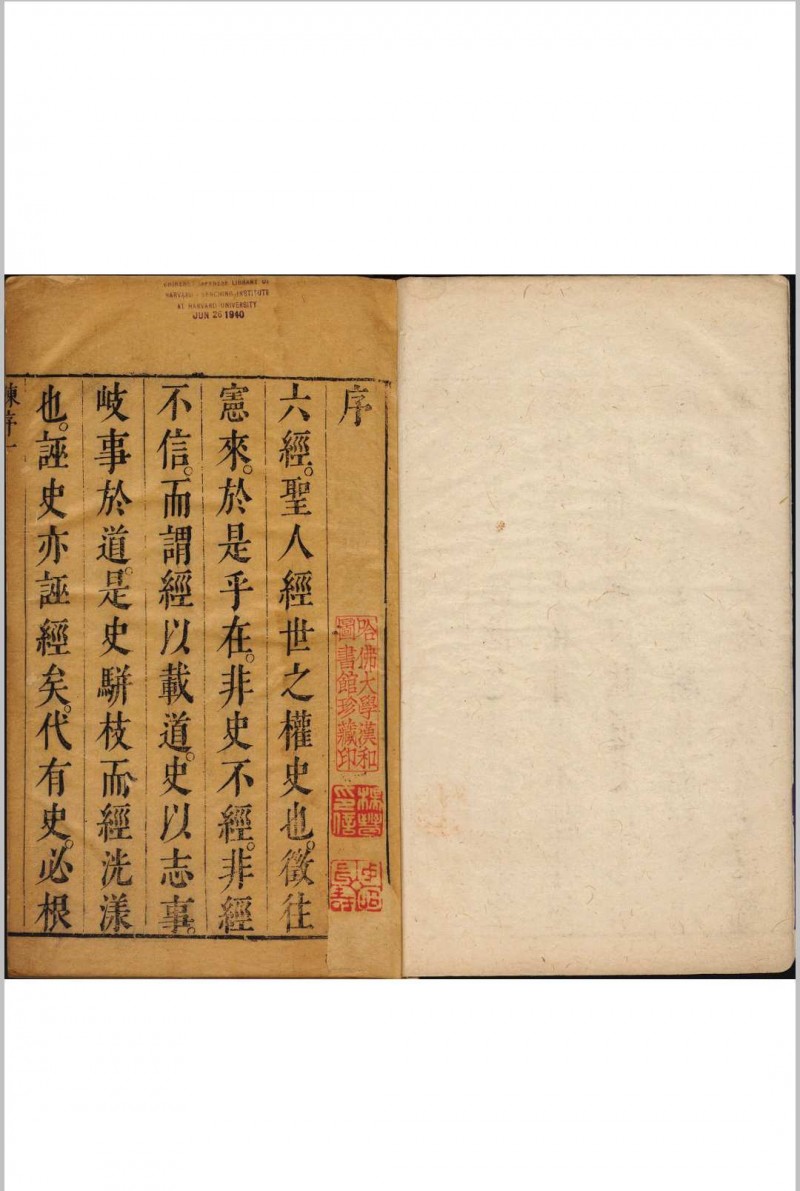 序
六經。聖人經世之權史也。徵往
憲來。於是乎在。非史不經。非經
不信。而謂經以載道。史以志事。
岐事於道。是史駢枝而經洸漾
也。誣史亦誣經矣。代有史。必根
陳序一
哈佛大學漢和
圖書館珍藏印
LIBRARY OF
HARVARD-YENCHING INSTITUTE
AT HARVARD UNIVERSITY
JUN 26 1940